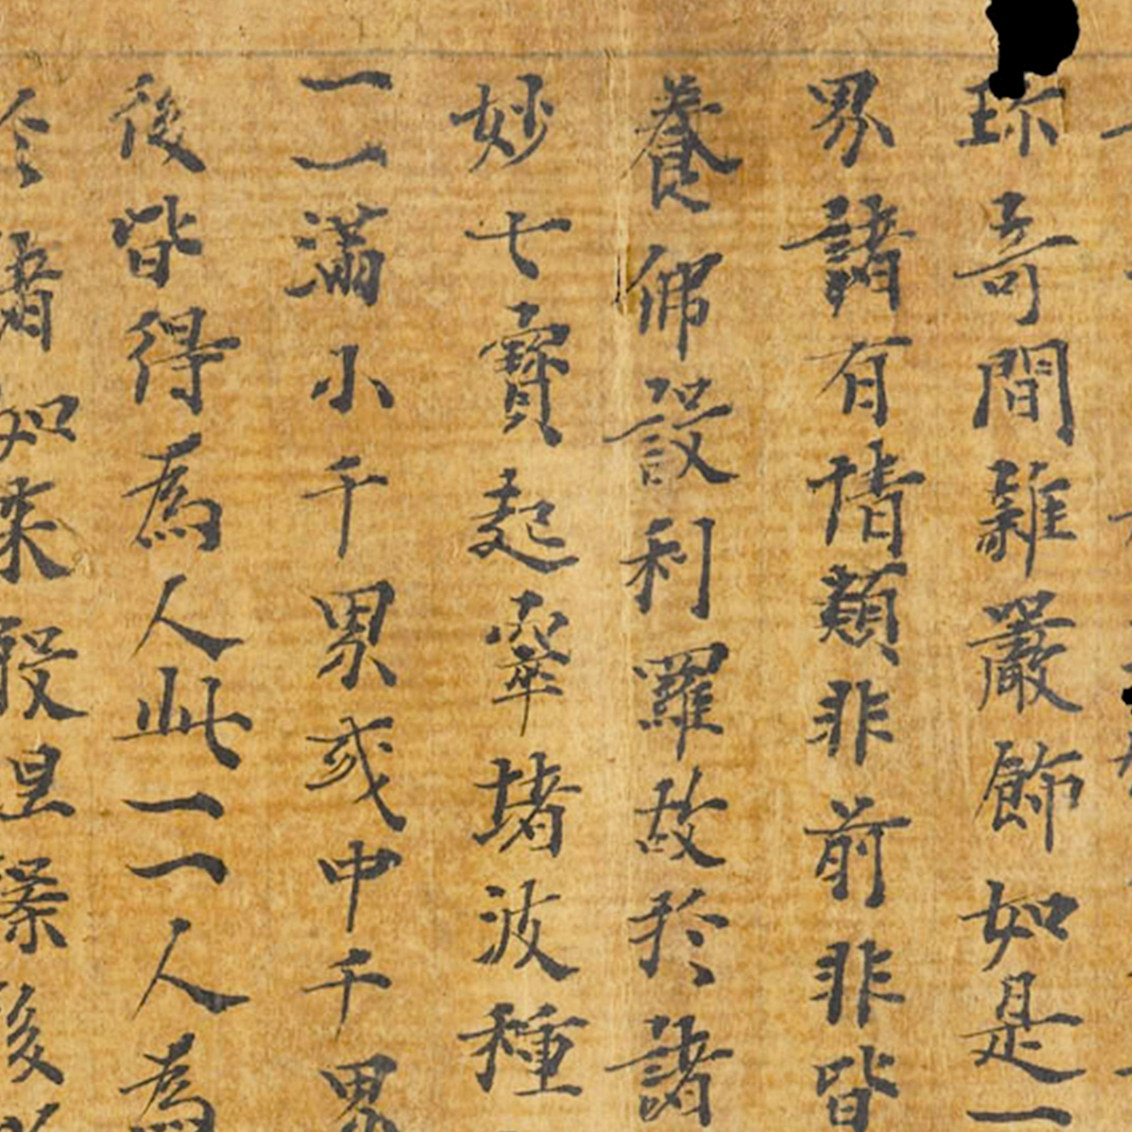 珎奇間雜嚴飾如是一
界諸有情類非前非皆
養佛設利羅故於諸
妙七寶起窣堵波種
一一滿小千界或中千界
後皆得為人此一一人為
於諸如來般涅槃後